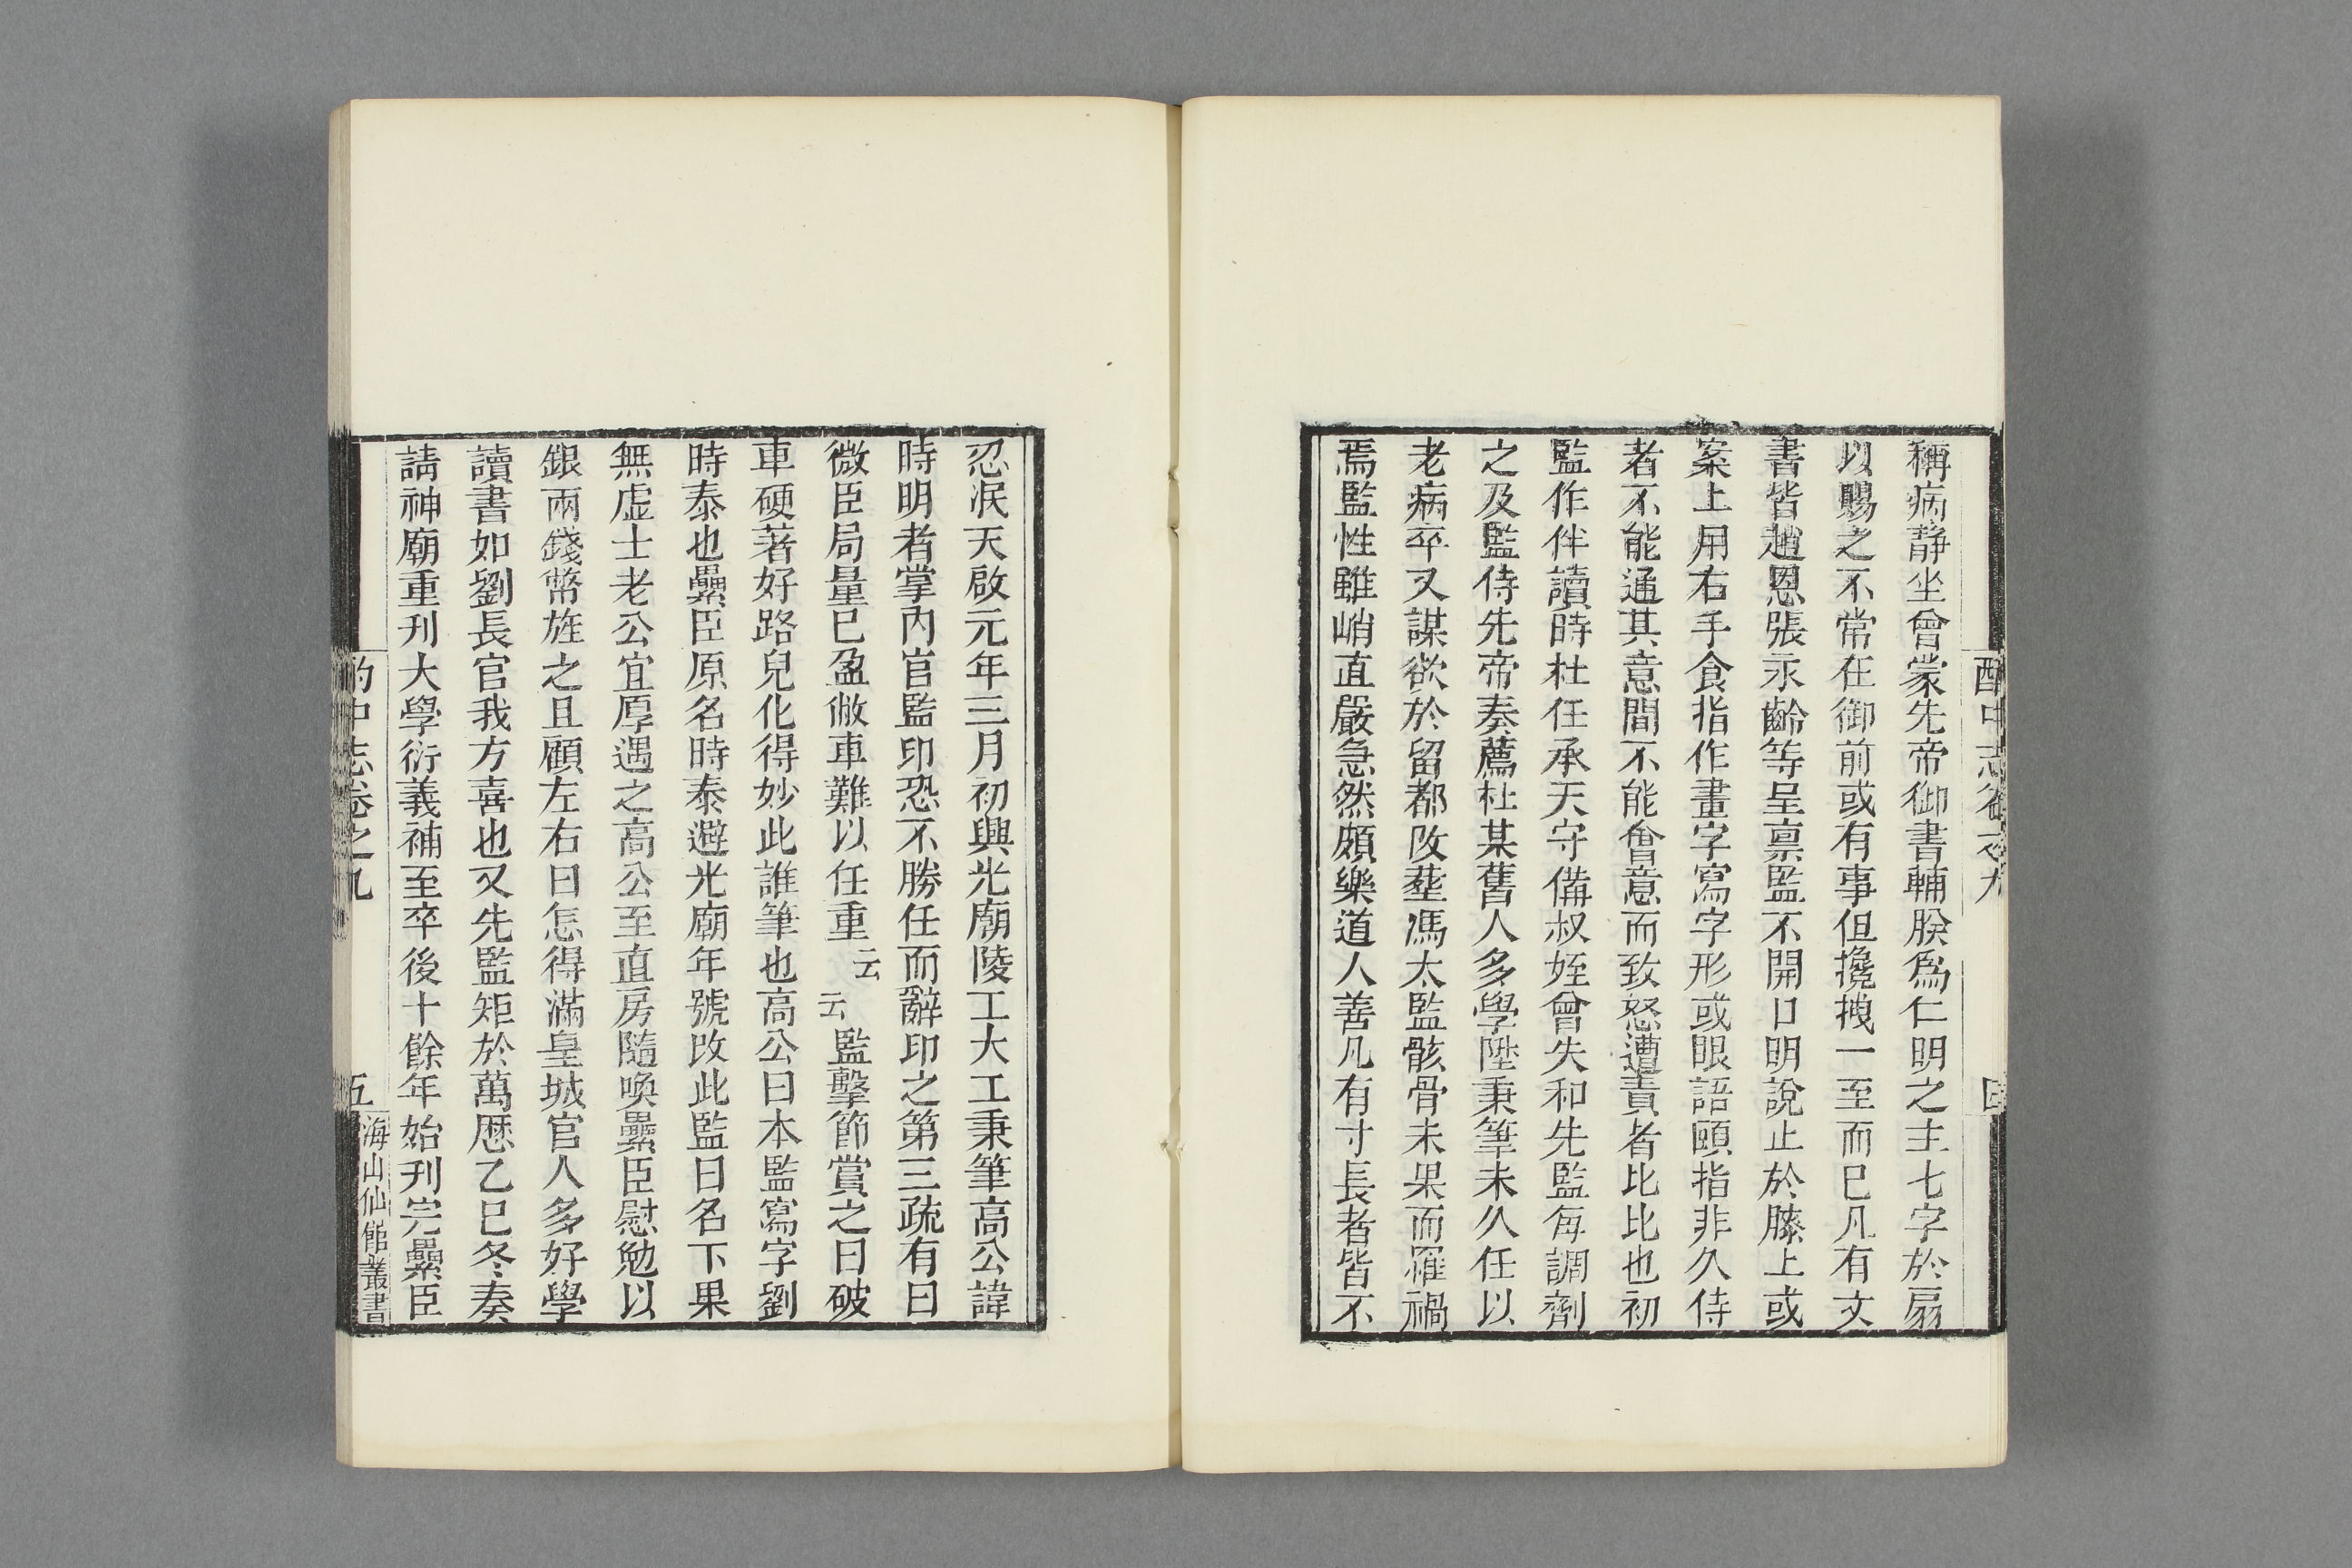 稱病靜坐曾蒙先帝御書輔朕爲仁明之主七字於扇
以賜之不常在御前或有事但攙拽一至而已凡有文
書皆趙恩張永齡等呈禀監不開口明說止於膝上或
案上用右手食指作畫字寫字形或眼語頤指非久侍
者不能通其意間不能會意而致怒遭責者比比也初
監作伴讀時杜任承天守備叔姪曾失和先監每調劑
之及監侍先帝奏薦杜某舊人多學陞秉筆未久任以
老病卒又謀欲於留都改塟馮太監骸骨未果而罹禍
焉監性雖峭直嚴急然頗樂道人善凡有寸長者皆不
酌中志卷之九 四
忍泯天啟元年三月初與光廟陵工大工秉筆高公諱
時明者掌內官監印恐不勝任而辭印之第三疏有曰
微臣局量已盈敝車難以任重云云監擊節賞之曰破
車硬著好路兒化得妙此誰筆也高公曰本監寫字劉
時泰也纍臣原名時泰避光廟年號改此監曰名下果
無虛士老公宜厚遇之高公至直房隨喚纍臣慰勉以
銀兩錢幣旌之且顧左右曰怎得滿皇城官人多好學
讀書如劉長官我方喜也又先監矩於萬厯乙巳冬奏
請神廟重刊大學衍義補至卒後十餘年始刊完纍臣
酌中志卷之九 五 海山仙館叢書